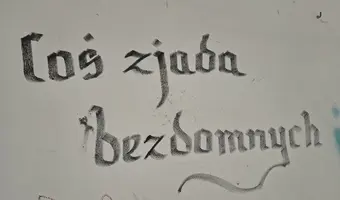 Coś zjada
bezdomnych